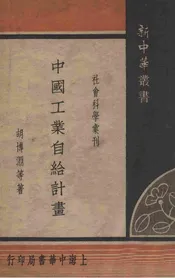 新中華叢書
社會科學彙刊
中國工業自給計畫
胡博淵等著
上海中華書局印行